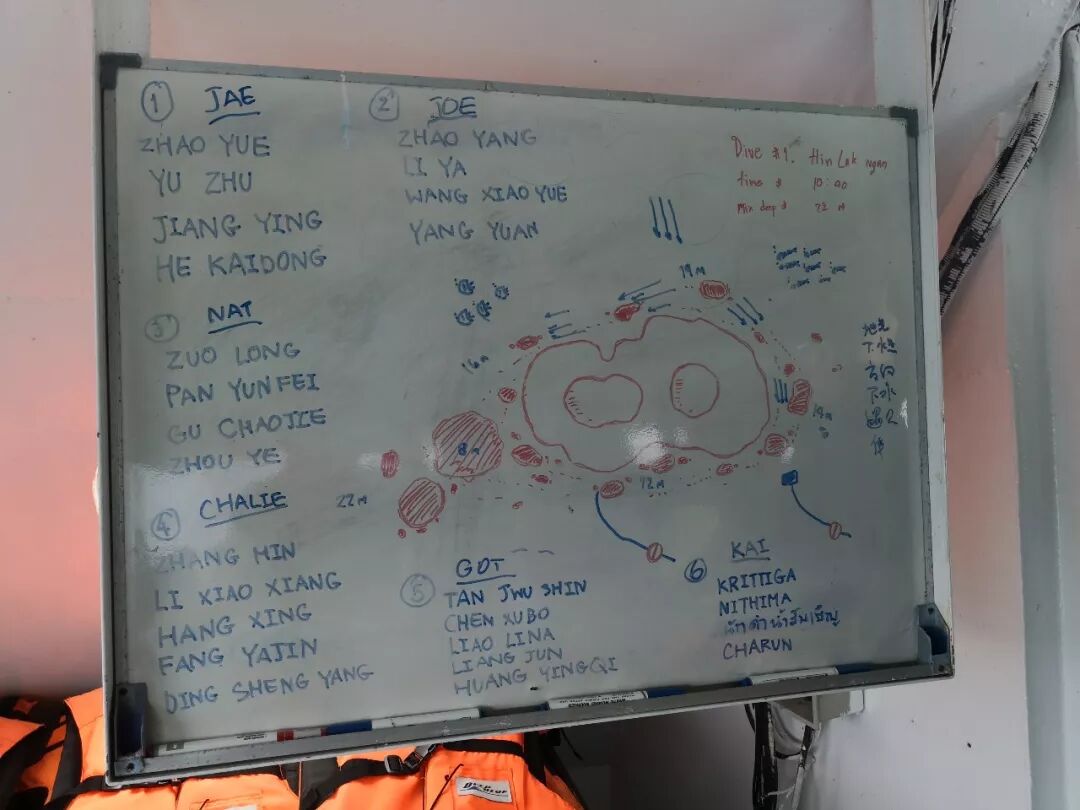 ① JAE
ZHAO YUE
YU ZHU
JIANG YING
HE KAIDONG
② JOE
ZHAO YANG
LI YA
WANG XIAO YUE
YANG YUAN
Dive #1. Hin Lak ngan
time : 10:00
③ NAT
ZUO LONG
PAN YUNFEI
GU CHAOJIE
ZHOU YE
④ CHALIE
ZHANG MIN
LI XIAO XIANG
HANG XING
FANG YAJIN
DING SHENG YANG
19 M
16 m
22 M
12 M
⑤ GOT
TAN JWU SHIN
CHEN XUBO
LIAO LINA
LIANG JUN
HUANG YINGQI
⑥ KAI
KRITTIGA
NITHIMA
CHARUN